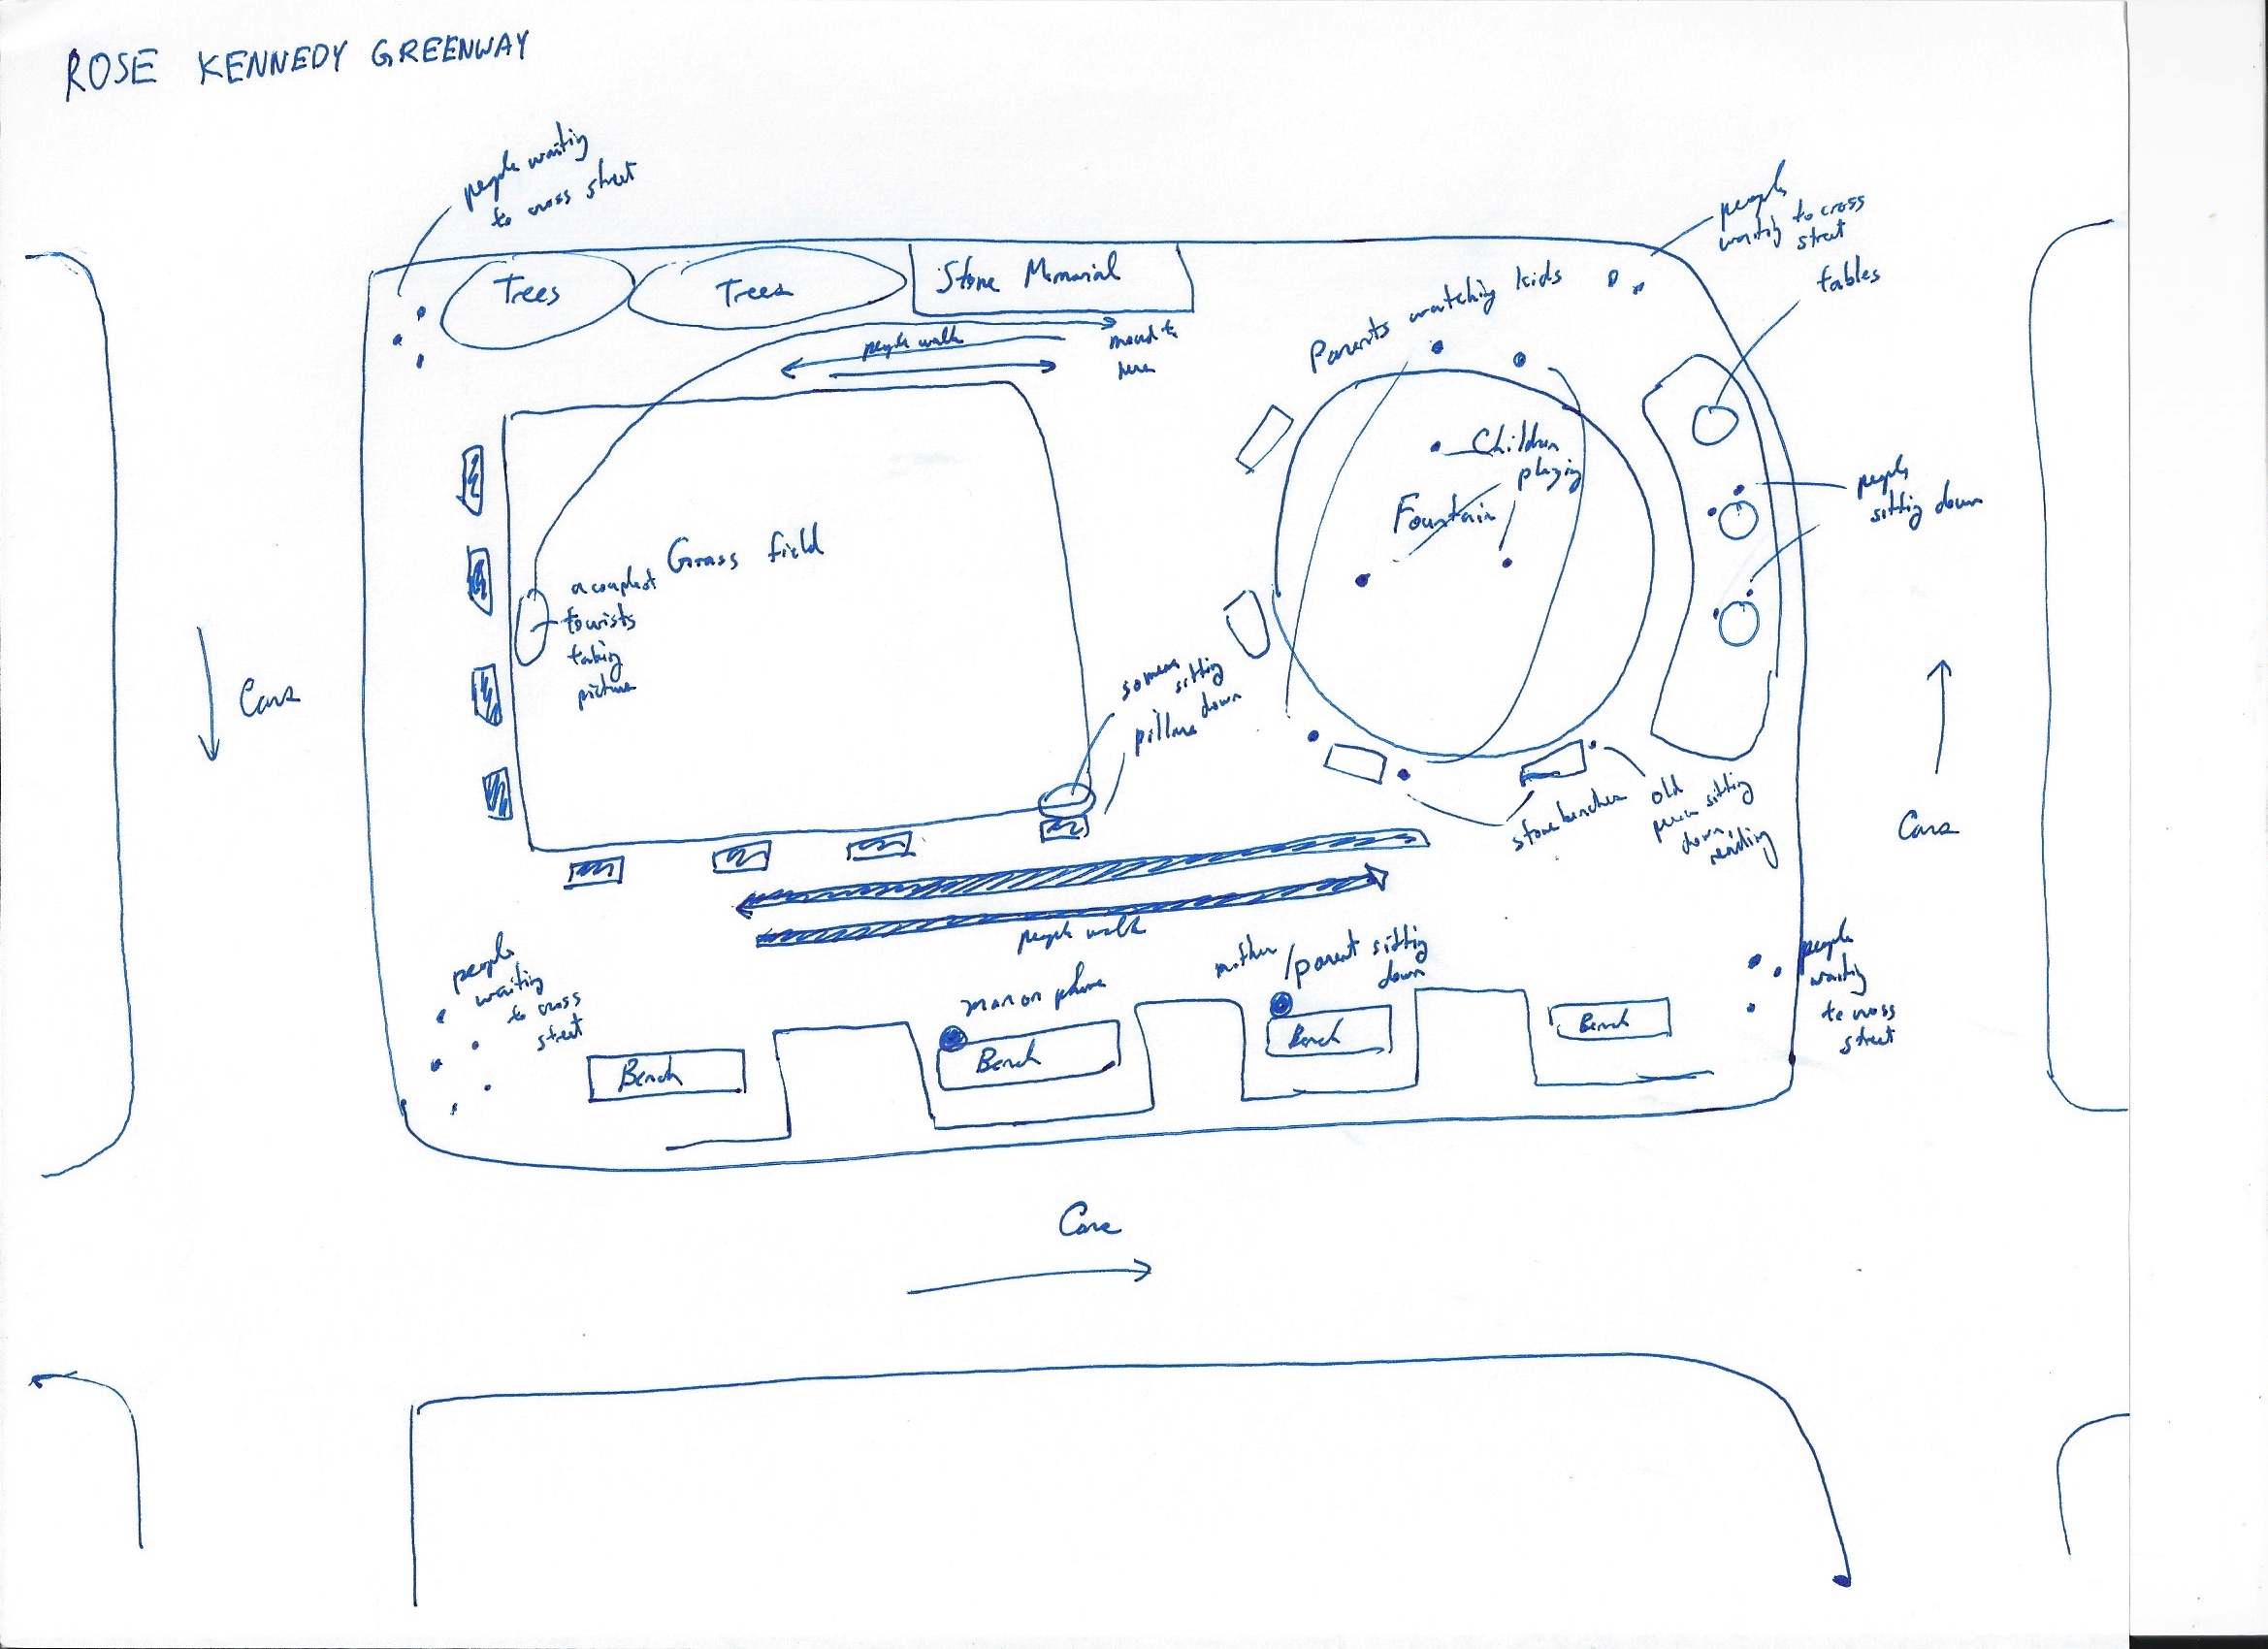 ROSE KENNEDY GREENWAY
people waiting
to cross street
people
waiting to cross
street
tables
Trees
Trees
Stone Memorial
people walk
moved to
here
Parents watching kids
Children
playing
Fountain
people
sitting down
Grass field
a couple of
tourists
taking
picture
Cars
someone
sitting
down
pillars
stone benches
old
man sitting
down,
reading
Cars
people walk
people
waiting
to cross
street
man on phone
mother/parent sitting
down
people
waiting
to cross
street
Bench
Bench
Bench
Bench
Cars